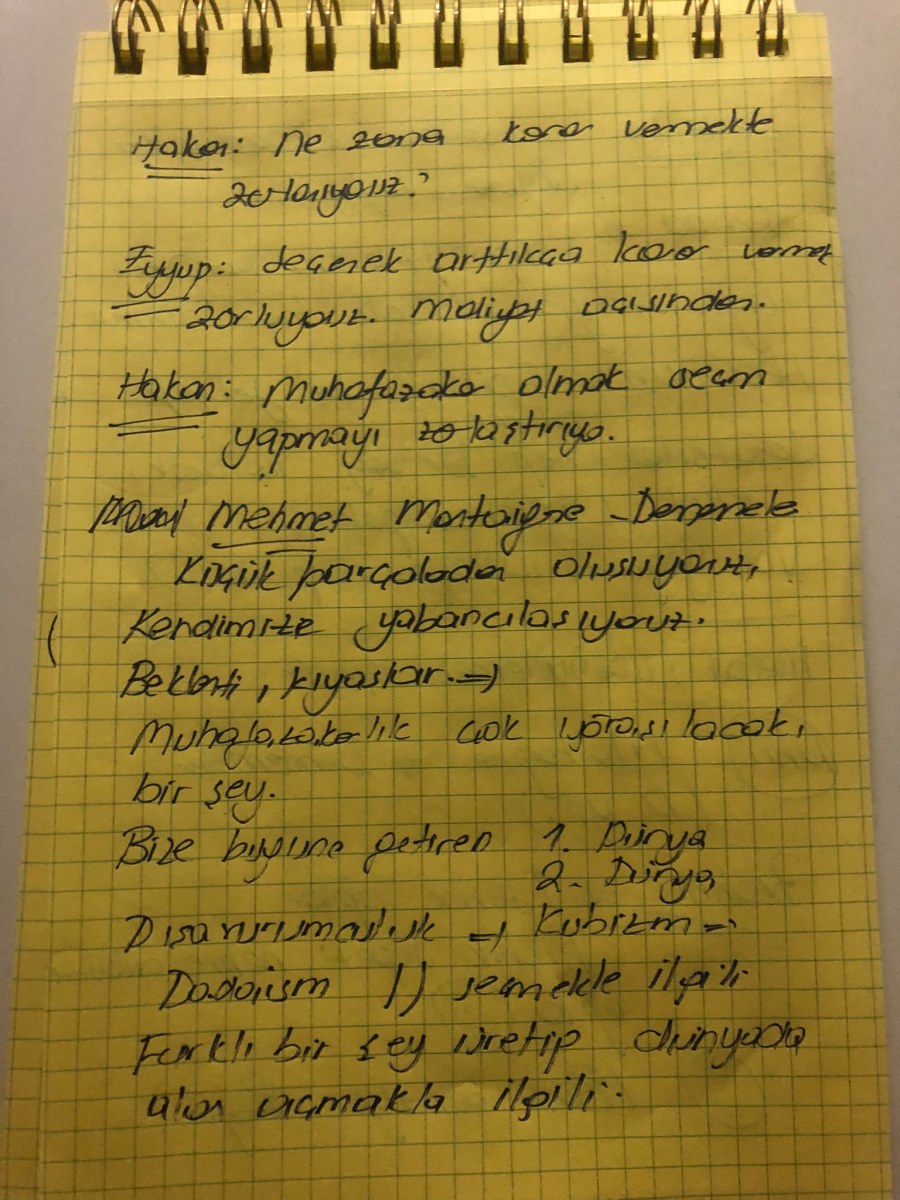 Hakan: Ne zaman karar vermekte
zorlanıyoruz?
Eyyup: Seçenek arttıkça karar vermek
zorluyoruz. Maliyet açısından.
Hakan: Muhafazakar olmak seçim
yapmayı zorlaştırıyo.
Mehmet Montaigne - Denemeler
Küçük parçalardan oluşuyoruz,
Kendimize yabancılaşıyoruz.
Beklenti, kıyaslar. =>
Muhafazakarlık çok
bir şey.
Bize bugüne getiren 1. Dünya
2. Dünya
Dışavurumculuk => Kubizm =>
Dadaism )) seçmekle ilgili
Farklı bir şey üretip dünyada
alan açmakla ilgili.